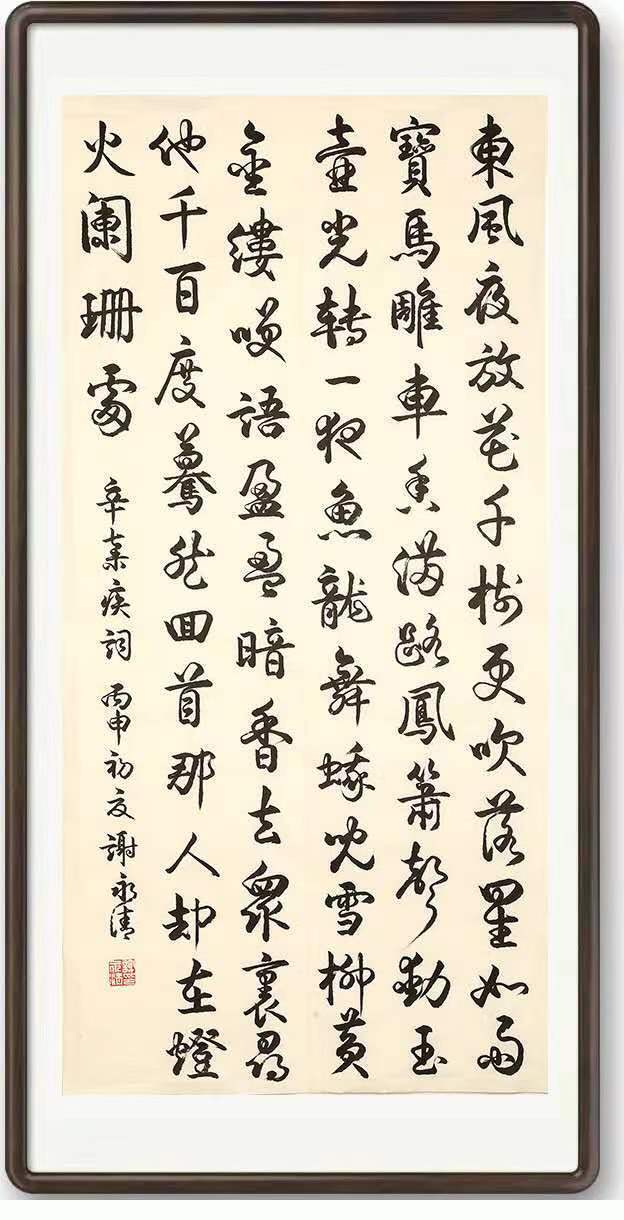 東風夜放花千樹更吹落星如雨
寶馬雕車香滿路鳳簫聲動玉
壺光轉一夜魚龍舞蛾兒雪柳黃
金縷咲語盈盈暗香去眾裏尋
他千百度驀然回首那人却在燈
火闌珊處
辛棄疾詞 丙申初夏謝永清